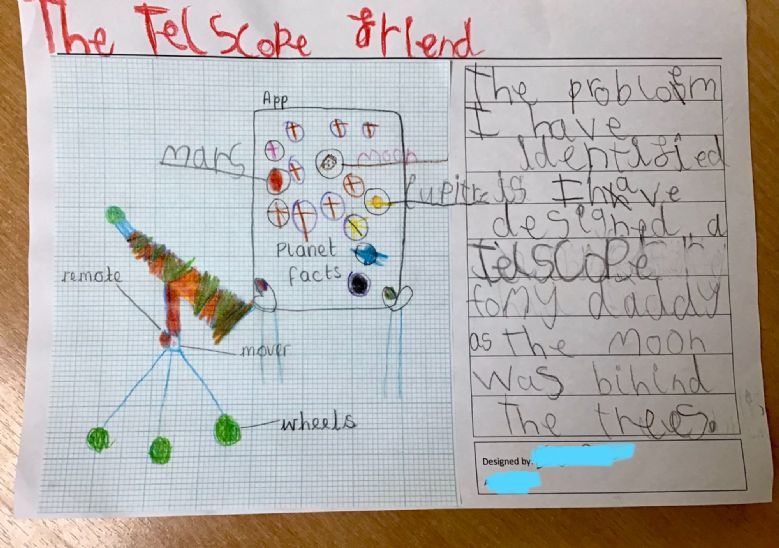 The Telscope friend
App
mars
moon
Jupiter
Planet
facts
remote
mover
wheels
The problom
I have
identified
is I have
designed a
Telscope
for my daddy
as The moon
was bihind
The trees.
Designed by: